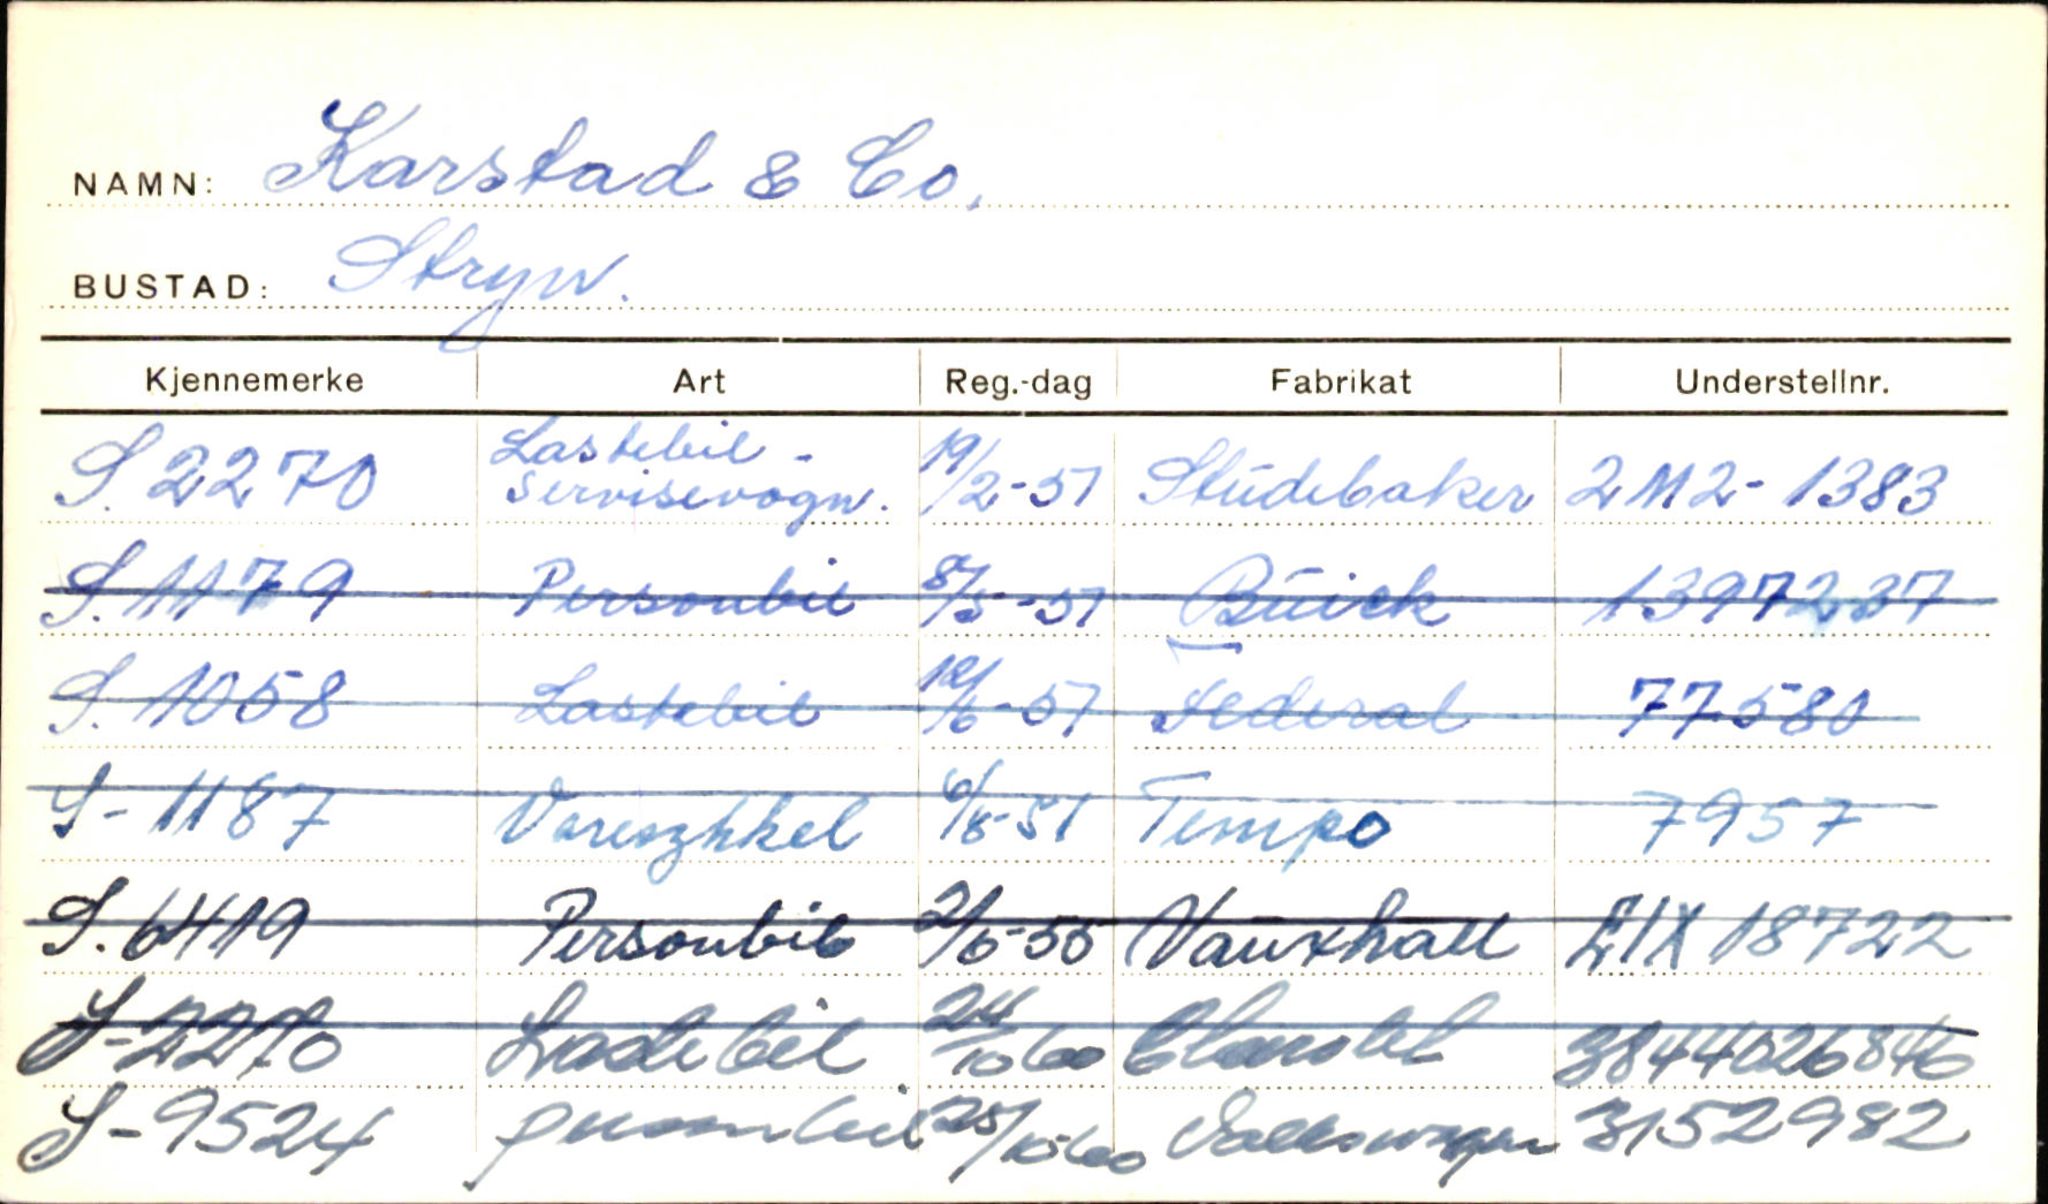 NAMN: Karstad & Co.
BUSTAD: Stryn.
Kjennemerke Art Reg.-dag Fabrikat Understellnr.
S. 2270 Lastebil - servisevogn. 19/2-51 Studebaker 2M2-1383
S. 1179 Personbil 8/5-51 Buick 13972237
S. 1058 Lastebil 12/6-51 Federal 77580
S-1187 Tempo 7957
S. 6419 Personbil 2/6-55 Vauxhall EIX 18722
S-2270 Lastebil 24/10 60 3844026846
S-9524 personbil 25/10-60 Volkswagen 3152982